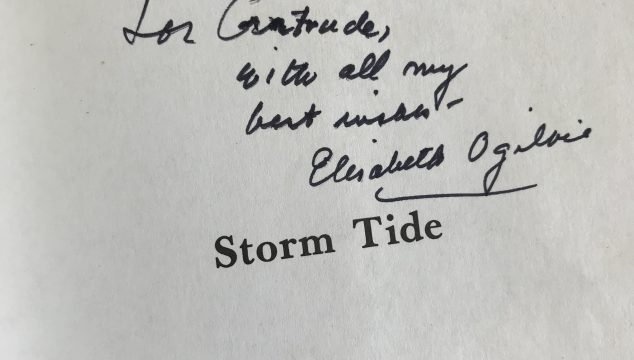 For Gertrude,
with all my
best wishes -
Elisabeth Ogilvie
Storm Tide